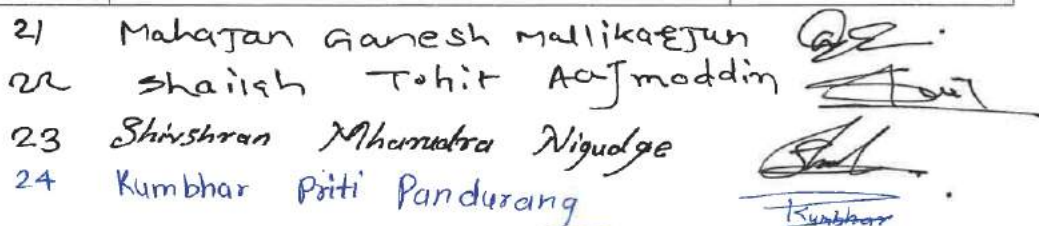 21 Mahajan Ganesh Mallikarjun
22 Shaikh Tohir
23 Shivshran Nigudge
24 Kumbhar Priti Pandurang Kumbhar